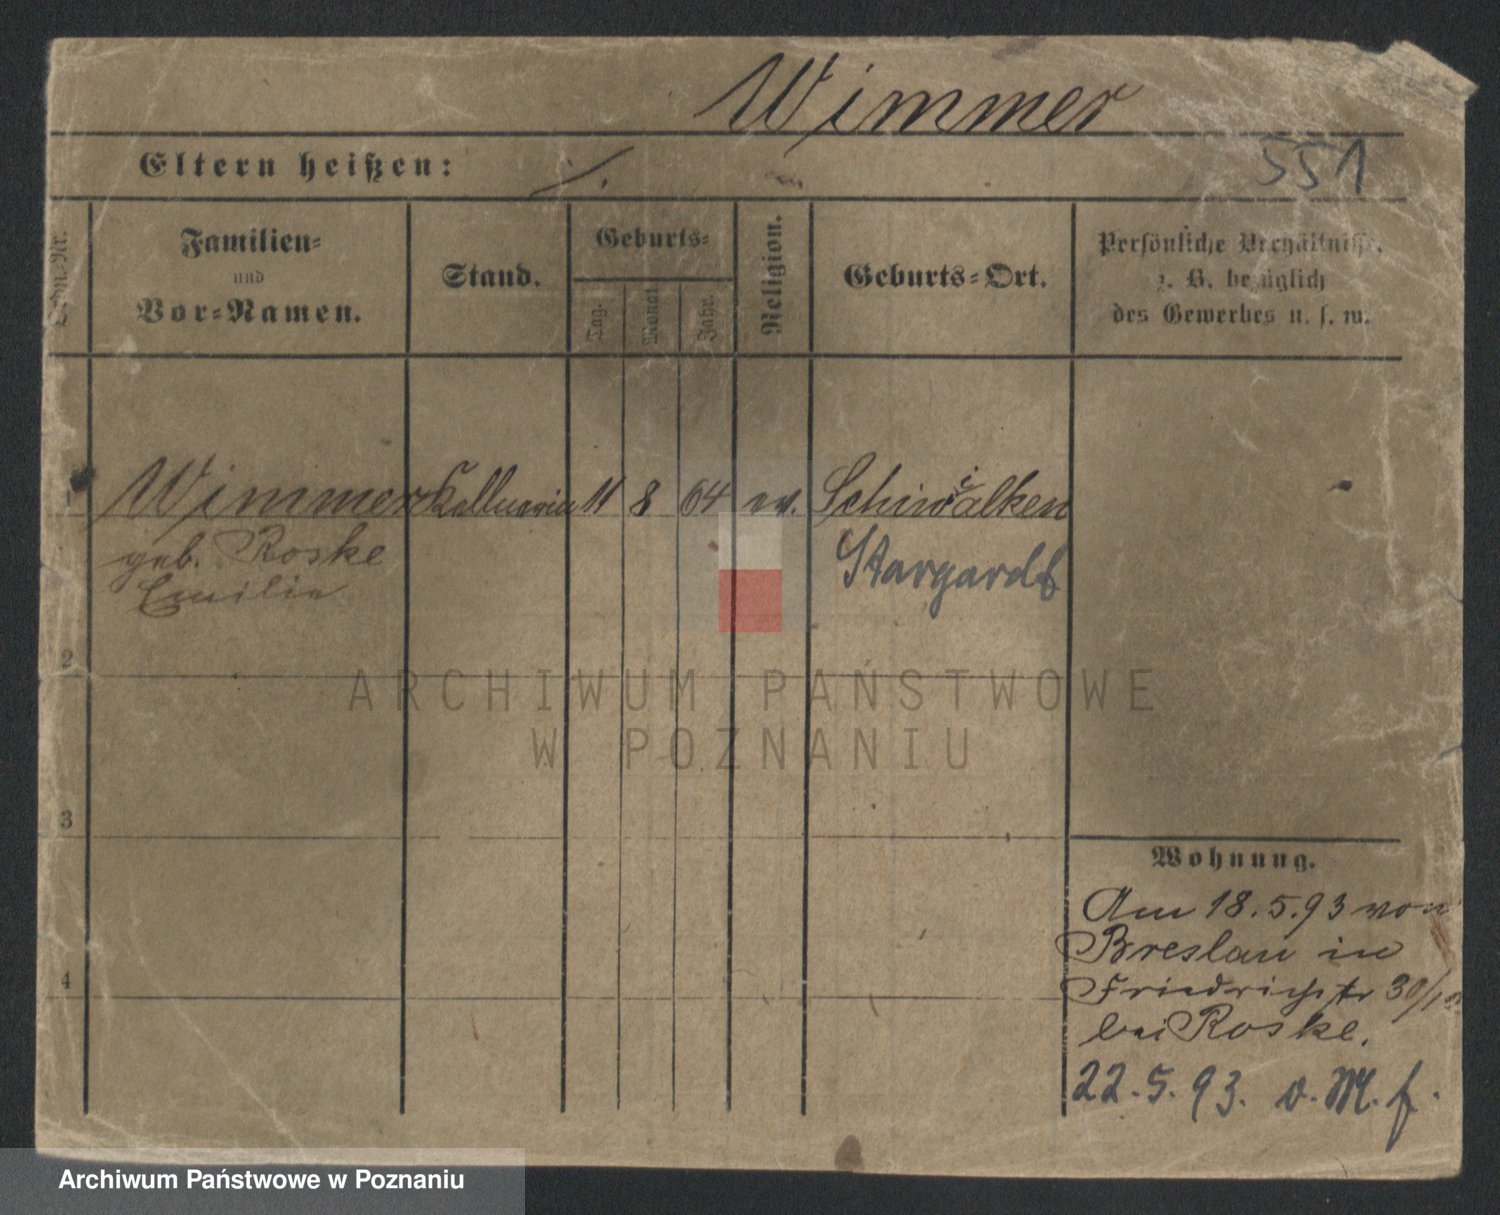 Wimmer
551
Eltern heißen: ./.
Lfde.-Nr.
Familien-
und
Vor-Namen.
Stand.
Geburts-
Tag.
Monat.
Jahr.
Religion.
Geburts-Ort.
Persönliche Verhältnisse,
z. B. bezüglich
des Gewerbes u. s. w.
1 Wimmer Kellnerin 11 8 64 ev. Schiwialken
geb. Roske Stargardt
Emilie
2
ARCHIWUM PAŃSTWOWE
W POZNANIU
3
Wohnung.
Am 18.5.93 von
Breslau in
4
Friedrichstr 30/
bei Roske.
22.5.93. v. M. f.
Archiwum Państwowe w Poznaniu